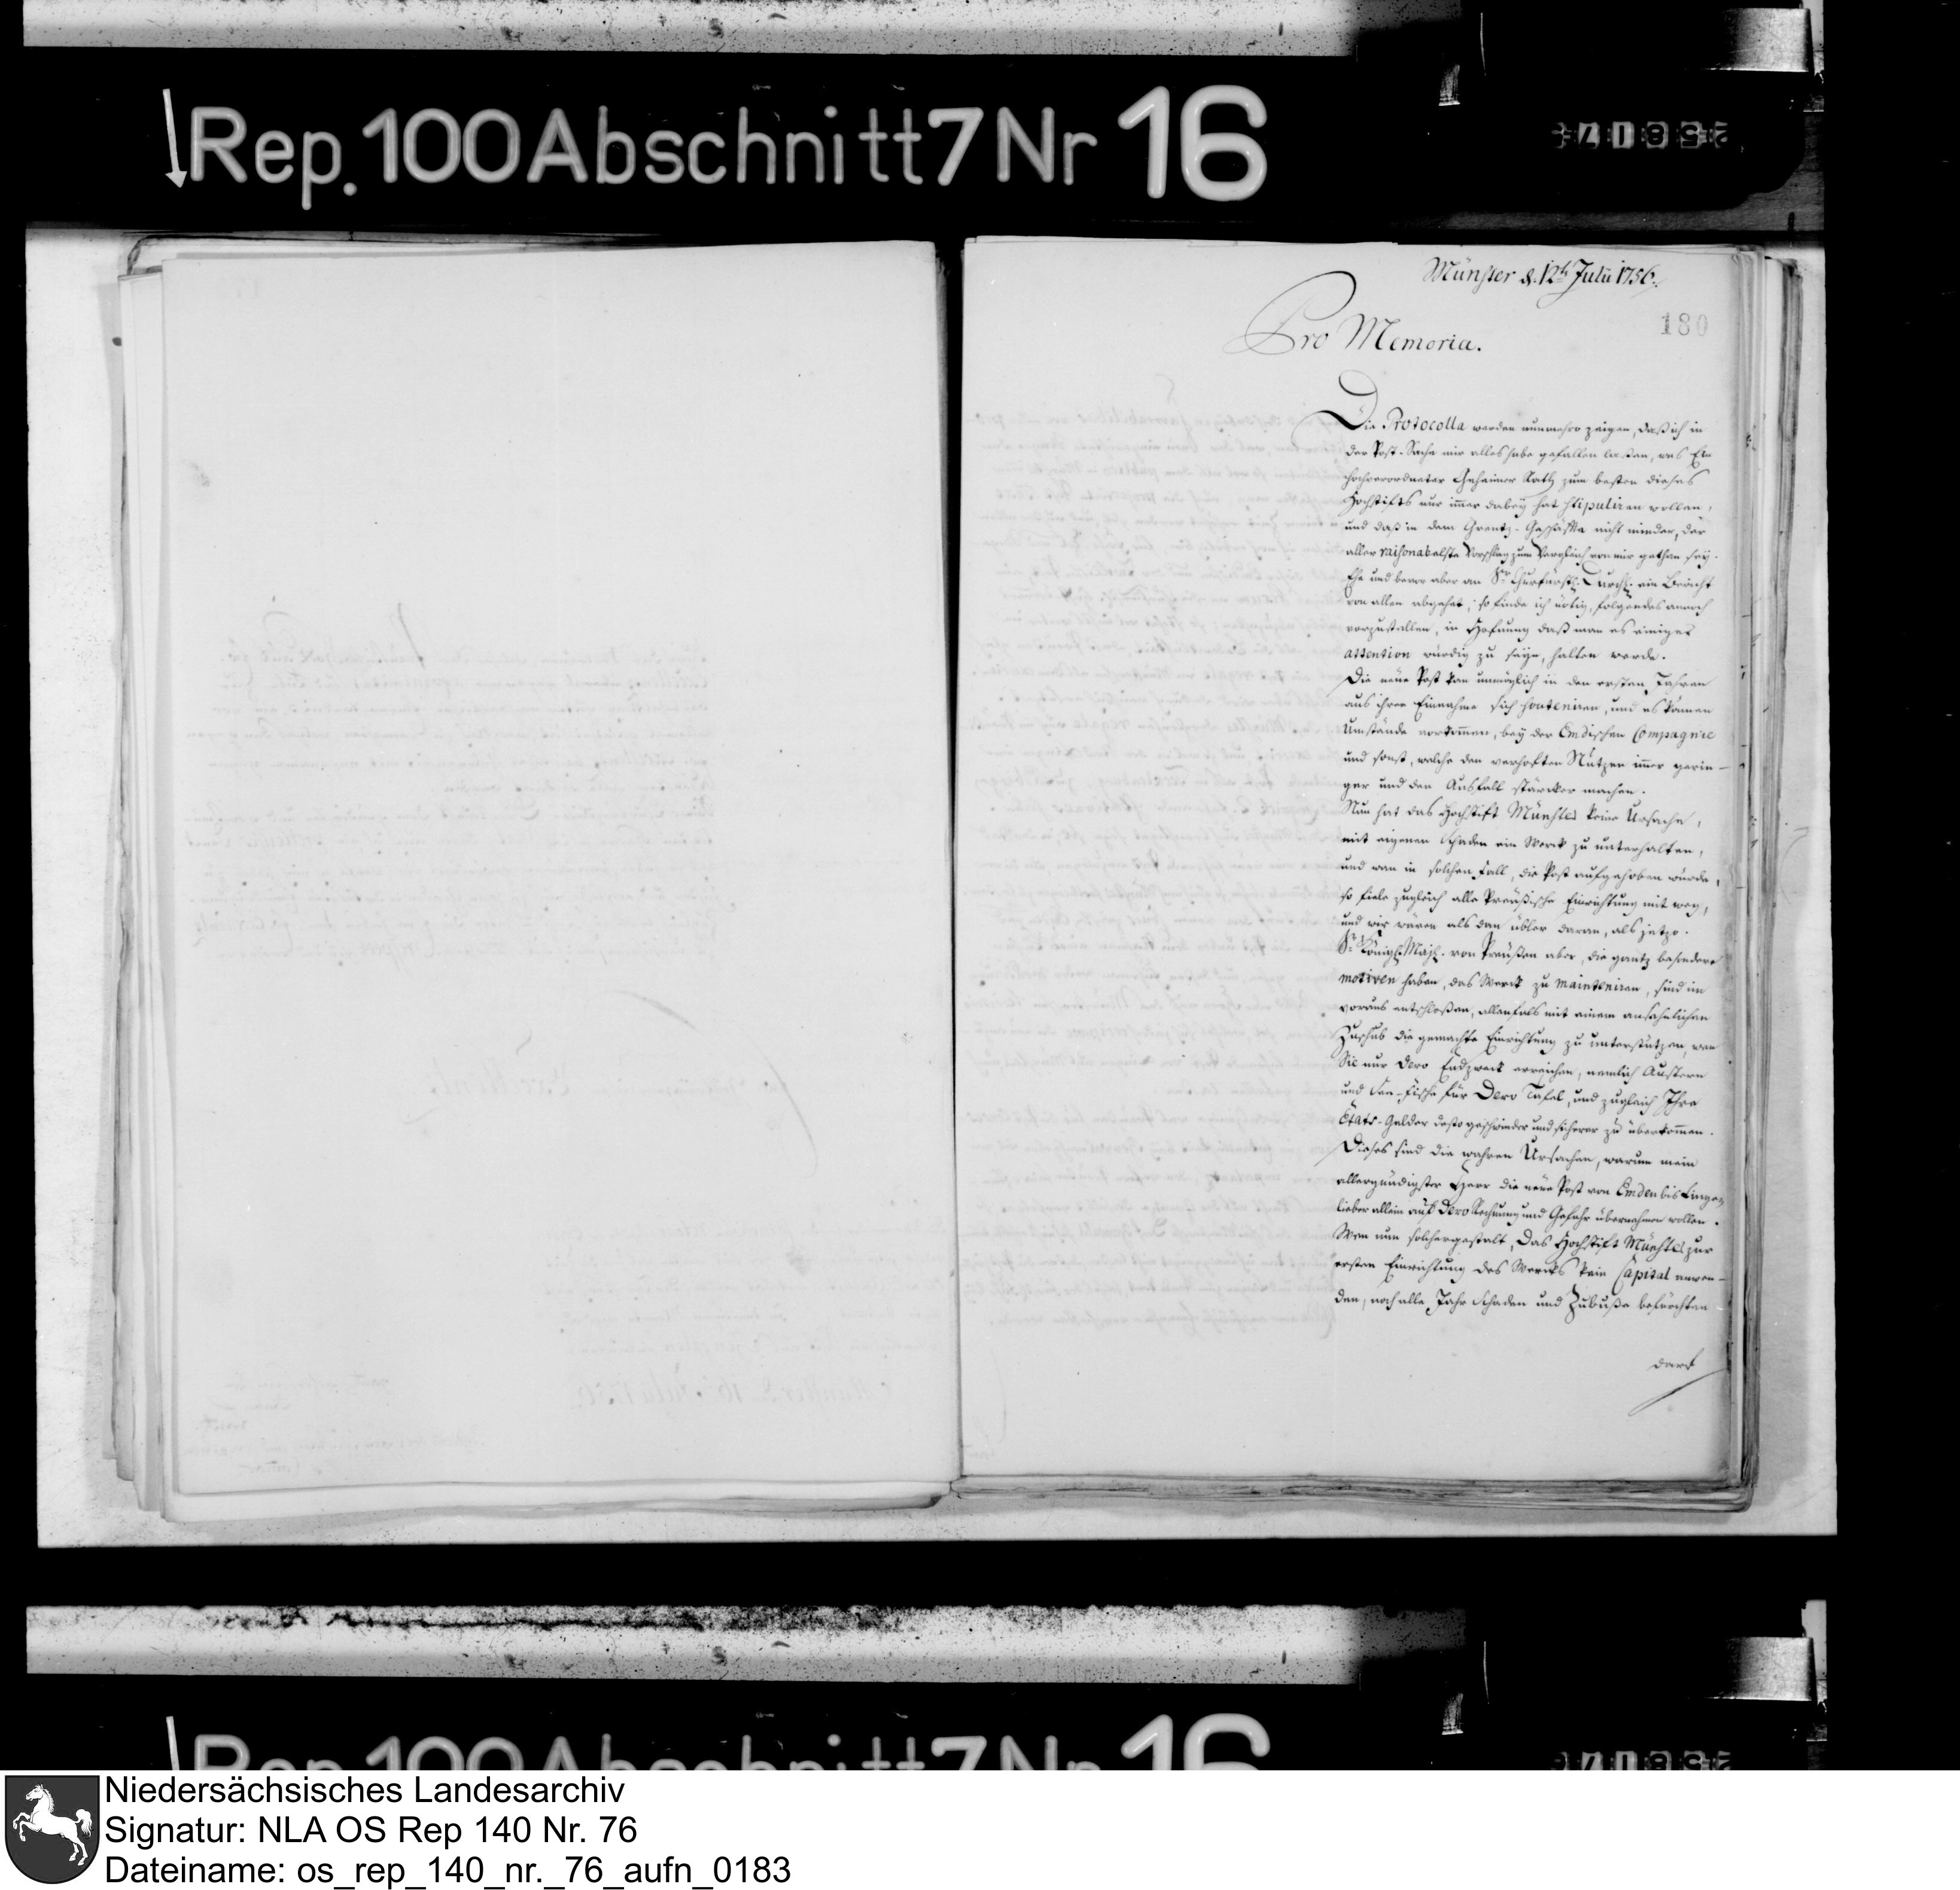 Rep. 100 Abschnitt 7 Nr 16
25817
Münster d. 12t Julii 1756.
180
Pro Memoria.
Die Protocolla werden nunmehro zeigen, daß ich in
der Post-Sache mir alles habe gefallen laßen, was Ein
hochverordneter Geheimer Rath zum besten dieses
Hochstifts nur im̄er dabey hat stipuliren wollen,
und daß in dem Grentz-Geschäffte nicht minder, der
aller raisonabelste Vorschlag zum Vergleich von mir gethan sey.
Ehe und bevor aber an Sr Churfürstl. Durchl. ein Bericht
von allen abgehet, so finde ich nötig, folgendes annoch
vorzustellen, in Hofnung daß man es einiger
attention würdig zu seyn, halten werde.
Die neüe Post kan unmöglich in den ersten Jahren
aus ihrer Einnahme sich souteniren, und es können
Umstände vorkom̄en, bey der Emdischen Compagnie
und sonst, welche den verhoften Nutzen im̄er gerin-
ger und den Ausfall stärcker machen.
Nun hat das Hochstift Münster keine Ursache,
mit eigenen Schaden ein Werck zu unterhalten,
und wan in solchen Fall, die Post aufgehoben würde,
so fiele zugleich alle Preüßische Einrichtung mit weg,
und wir wären als dan übler daran, als jetzo.
Sr Königl. Majt. von Preüßen aber, die gantz besondere
motiven haben, das Werck zu mainteniren, sind im
voraus entschloßen, allenfals mit einem ansehnlichen
Zuschub die gemachte Einrichtung zu unterstutzen, wan
Sie nur Dero Endzweck erreichen, nemlich Austern
und See-Fische für Dero Tafel, und zugleich Ihre
Etats-Gelder desto geschwinder und sicherer zu überkom̄en.
Dieses sind die wahren Ursachen, warum mein
allergnädigster Herr die neüe Post von Emden bis Lingen
lieber allein auf Dero Rechnung und Gefahr übernehmen wollen.
Wen nun solchergestalt, das Hochstift Münster zur
ersten Einrichtung des Wercks kein Capital anwen-
den, noch alle Jahr Schaden und Zubuße beförchten
darf
Rep. 100 Abschnitt 7 Nr 16
25817
Niedersächsisches Landesarchiv
Signatur: NLA OS Rep 140 Nr. 76
Dateiname: os_rep_140_nr._76_aufn_0183